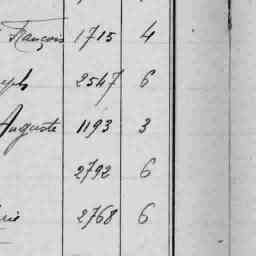 François 1715 4
eph 2547 6
Auguste 1193 3
2792 6
rie 2768 6